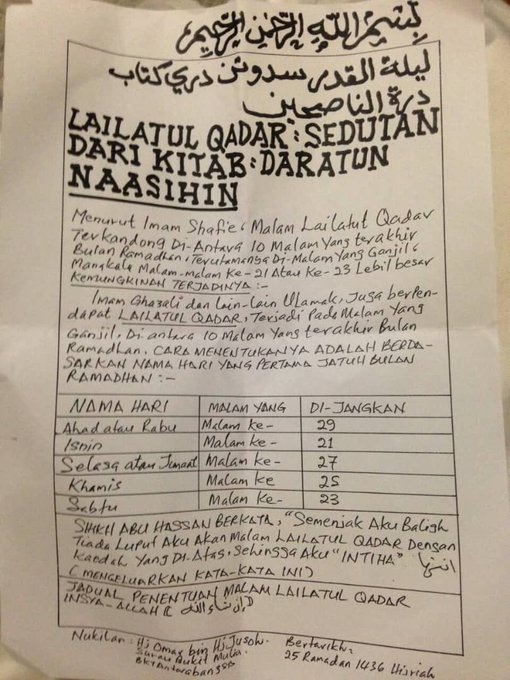 بِسْمِ اللهِ الرَّحْمٰنِ الرَّحِيْمِ
ليلة القدر سدوتن دري كتاب
درة الناصحين
LAILATUL QADAR: SEDUTAN
DARI KITAB: DARATUN
NAASIHIN
Menurut Imam Shafie, Malam Lailatut Qadar
Terkandong Di-Antara 10 Malam Yang terakhir
Bulan Ramadhan, Terutamanya Di-Malam Yang Ganjil,
Mangkala Malam-malam Ke-21 Atau Ke-23 Lebil besar
KEMUNGKINAN TERJADINYA :-
Imam Ghazali dan lain-lain Ulamak, Juga berpen-
dapat LAILATUL QADAR, Terjadi Pada Malam Yang
Ganjil, Di antara 10 Malam Yang terakhir Bulan
Ramadhan. CARA MENENTUKANYA ADALAH BERDA-
SARKAN NAMA HARI YANG PERTAMA JATUH BULAN
RAMADHAN :-
NAMA HARI MALAM YANG DI-JANGKAN
Ahad atau Rabu Malam ke- 29
Isnin Malam ke- 21
Selasa atau Jumaat Malam ke- 27
Khamis Malam ke 25
Sabtu Malam ke- 23
SHIKH ABU HASSAN BERKATA, "Semenjak Aku Baligh
Tiada Luput Aku Akan Malam LAILATUL QADAR Dengan
Kaedah Yang Di-Atas, Sehingga Aku "INTIHA" انتها
(MENGELUARKAN KATA-KATA INI)
JADUAL PENENTUAN MALAM LAILATUL QADAR
INSYA-ALLAH (ان شاء الله)
Nukilan: Hj Omar bin Hj Jusoh. Bertarikh:
Surau Bukit Mulia 25 Ramadan 1436 Hijriah